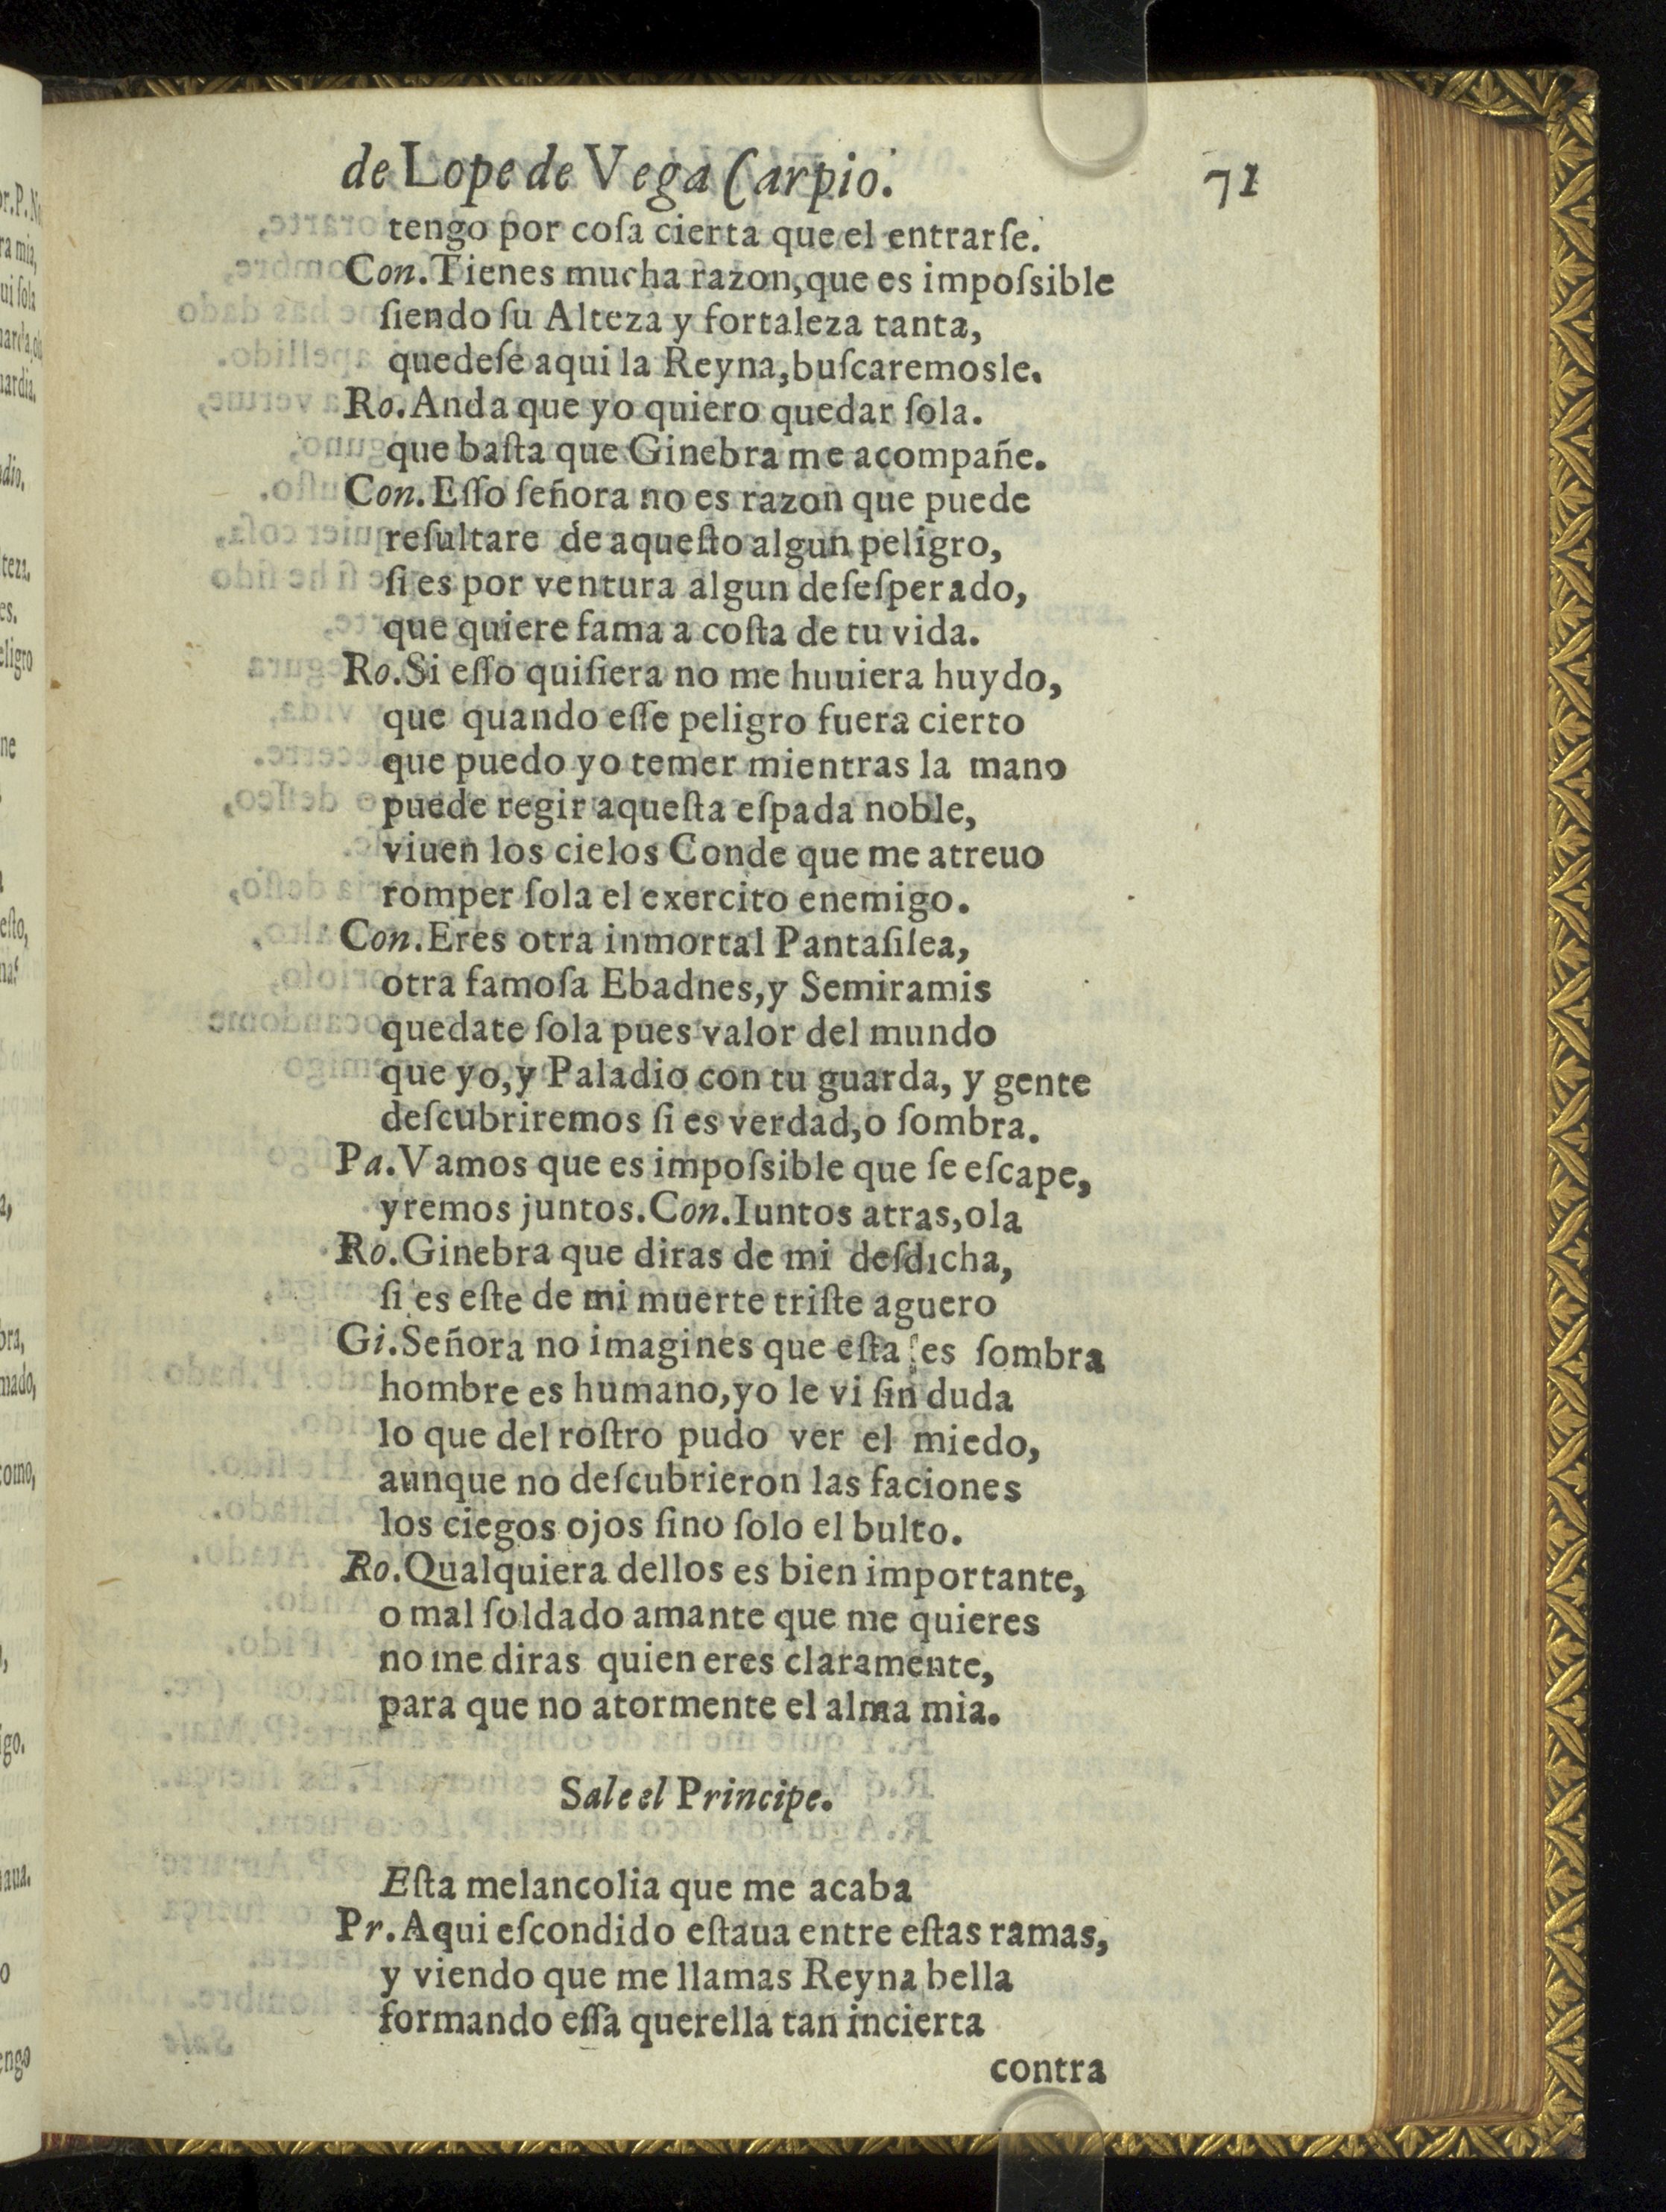 de Lope de Vega Carpio. 71
tengo por coſa cierta que el entrarſe.
Con.Tienes mucha razon,que es impoſsible
ſiendo ſu Alteza y fortaleza tanta,
quedeſe aqui la Reyna,buſcaremosle.
Ro.Anda que yo quiero quedar ſola.
que baſta que Ginebra me acompañe.
Con.Eſſo ſeñora no es razon que puede
reſultare de aqueſto algun peligro,
ſi es por ventura algun deſeſperado,
que quiere fama a coſta de tu vida.
Ro.Si eſſo quiſiera no me huuiera huydo,
que quando eſſe peligro fuera cierto
que puedo yo temer mientras la mano
puede regir aqueſta eſpada noble,
viuen los cielos Conde que me atreuo
romper ſola el exercito enemigo.
Con.Eres otra inmortal Pantaſilea,
otra famoſa Ebadnes,y Semiramis
quedate ſola pues valor del mundo
que yo,y Paladio con tu guarda, y gente
deſcubriremos ſi es verdad,o ſombra.
Pa.Vamos que es impoſsible que ſe eſcape,
yremos juntos.Con.Iuntos atras,ola
Ro.Ginebra que diras de mi deſdicha,
ſi es eſte de mi muerte triſte aguero
Gi.Señora no imagines que eſta es ſombra
hombre es humano,yo le vi ſin duda
lo que del roſtro pudo ver el miedo,
aunque no deſcubrieron las faciones
los ciegos ojos ſino ſolo el bulto.
Ro.Qualquiera dellos es bien importante,
o mal ſoldado amante que me quieres
no me diras quien eres claramente,
para que no atormente el alma mia.
Sale el Principe.
Eſta melancolia que me acaba
Pr.Aqui eſcondido eſtaua entre eſtas ramas,
y viendo que me llamas Reyna bella
formando eſſa querella tan incierta
contra